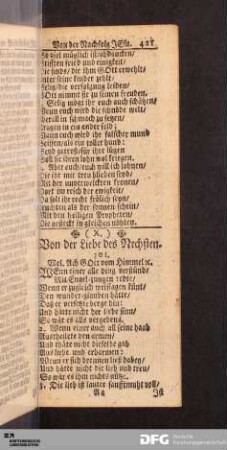 Von der Nachfolg JEsu. 421
so viel müglich ist/abdancken/
Stifften fried und einigkeit/
Die sinds/ die ihm GOtt erwehlt/
Unter seine kinder zehlt/
Selig/ die verfolgung leiden/
GOtt nimmt sie zu seinen freuden.
Selig mögt ihr euch auch schätzen/
Wann euch wird die schnöde welt/
Uberall in schmach zu setzen/
Wann euch wird ihr falscher mund
Heissen/als ein toller hund:
Seyd getrost/für ihre lügen
Solt ihr ihren lohn wol kriegen.
Aber euch/euch will ich lohnen/
Die ihr mir treu blieben seyd/
Mit der unverwelckten kronen/
Dort im reich der ewigkeit/
Da solt ihr recht frölich seyn/
Leuchten als der sonnen schein/
Mit den heiligen Propheten/
Die gesteckt in gleichen nöthen.
( X. )
Von der Liebe des Nechsten.
301.
Mel. Ach GOtt vom Himmel ꝛc.
WEnn einer alle ding verstünde/
Mit Engel-zungen redte/
Wenn er zugleich weissagen künt/
Den wunder-glauben hätte/
Daß er versetzte berge hin:
Und hätte nicht der liebe sinn/
So wär es alls vergebens.
2. Wenn einer auch all seine haab
Austheilete den armen/
Und thäte nicht dieselbe gab
Aus liebe und erbarmen:
Wenn er sich brennen ließ dabey/
Und hätte nicht die lieb und treu/
So wär es ihm nichts nütze.
3. Die lieb ist lauter sanfftmuht voll/
Ist
DFG Deutsche
Forschungsgemeinschaft